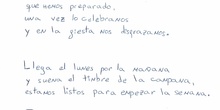 que hemos preparado,
una vez lo celebramos
y en la fiesta nos disfrazamos.
Llega el lunes por la mañana
y suena el timbre de la campana,
estamos listos para empezar la semana.